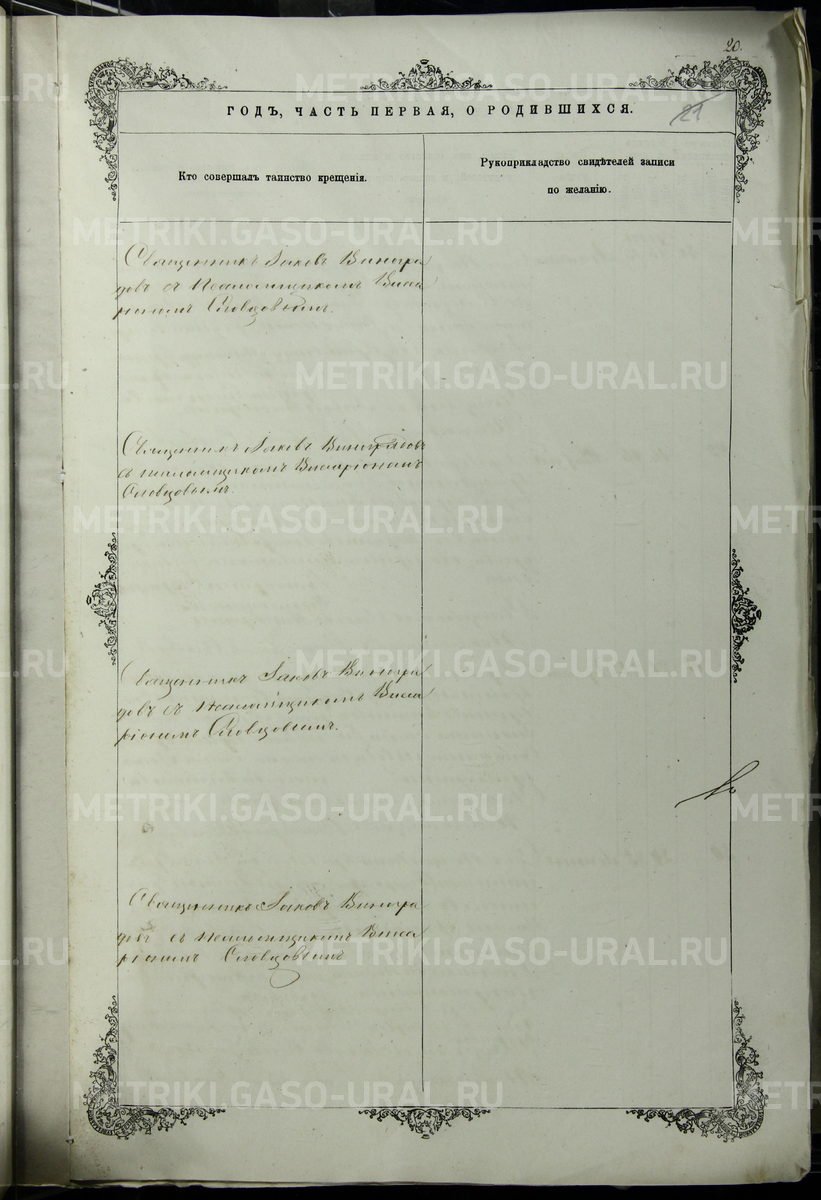 20.
21
ГОДЪ, ЧАСТЬ ПЕРВАЯ, О РОДИВШИХСЯ.
Кто совершалъ таинство крещенія.
Рукоприкладство свидѣтелей записи
по желанію.
Священникъ Іаковъ Виногра
довъ съ Псаломщикомъ Висса
ріономъ Словцовымъ.
Священникъ Іаковъ Виноградовъ
съ псаломщикомъ Виссаріономъ
Словцовымъ.
Священникъ Іаковъ Виногра
довъ съ Псаломщикомъ Висса
ріономъ Словцовымъ.
Священникъ Іаковъ Виногра
довъ съ Псаломщикомъ Висса
ріономъ Словцовымъ
METRIKI.GASO-URAL.RU